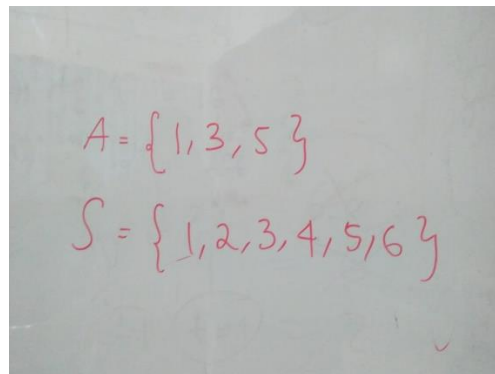 A = {1, 3, 5}
S = {1, 2, 3, 4, 5, 6}